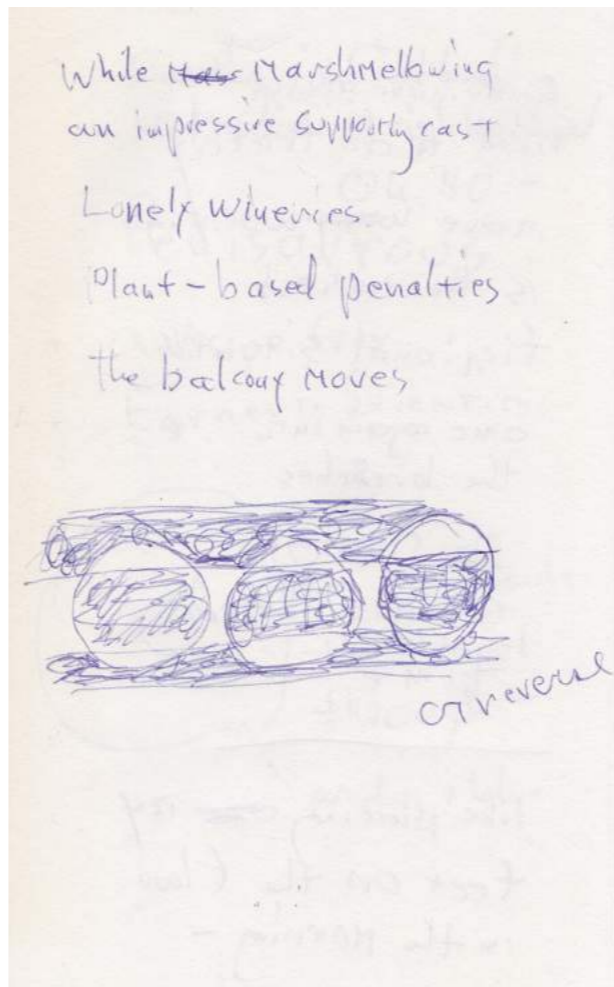 While Marshmellowing
an impressive supporting cast
Lonely Wineries
Plant-based penalties
the balcony moves
or reverse